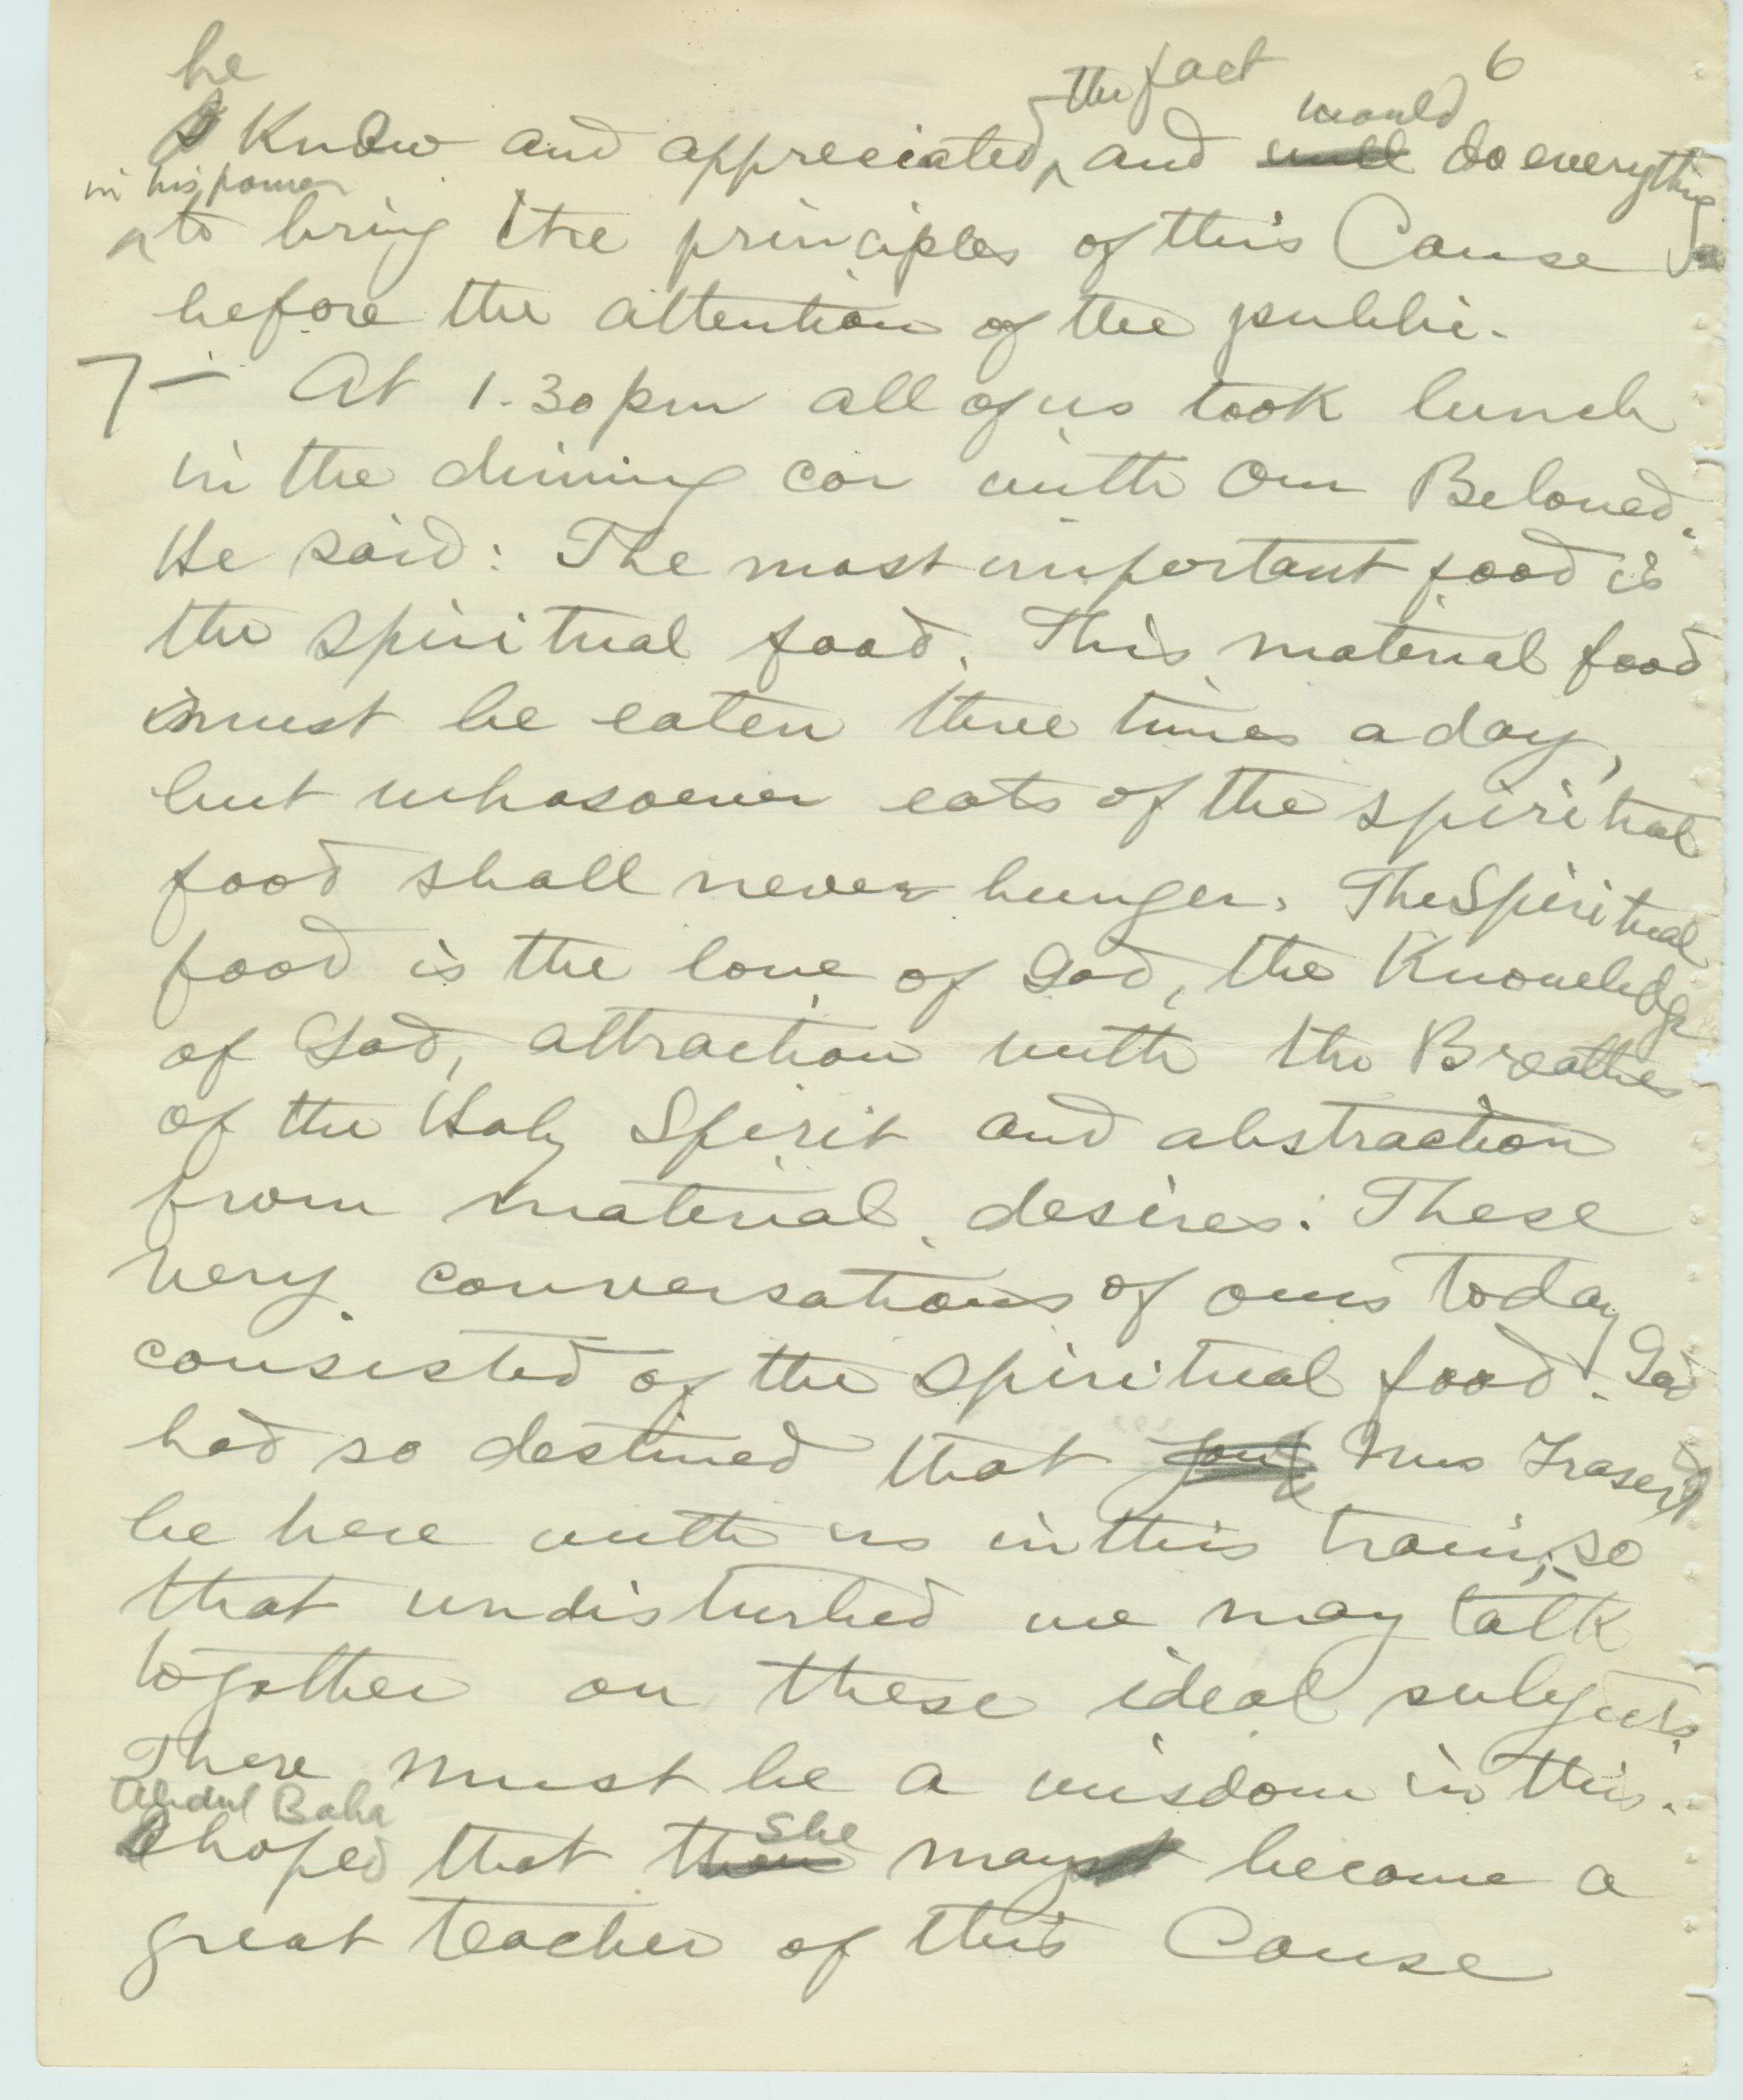 6
he the fact would
I Knew and appreciated, and will do everything
in his power
to bring the principles of this Cause
before the attention of the public.
7— At 1.30 pm all of us took lunch
in the dining car with Our Beloved.
He said: The most important food is
the spiritual food. This material food
must be eaten three times a day,
but whosoever eats of the spiritual
food shall never hunger. The Spiritual
food is the love of God, the Knowledge
of God, attraction with the Breathes
of the Holy Spirit and abstraction
from material desires. These
very conversations of ours today
consisted of the spiritual food. God
had so destined that Mrs Fraser
be here with us in this train, so
that undisturbed we may talk
together on these ideal subjects.
There must be a wisdom in this.
Abdul Baha she
I hoped that thou may become a
great teacher of this Cause